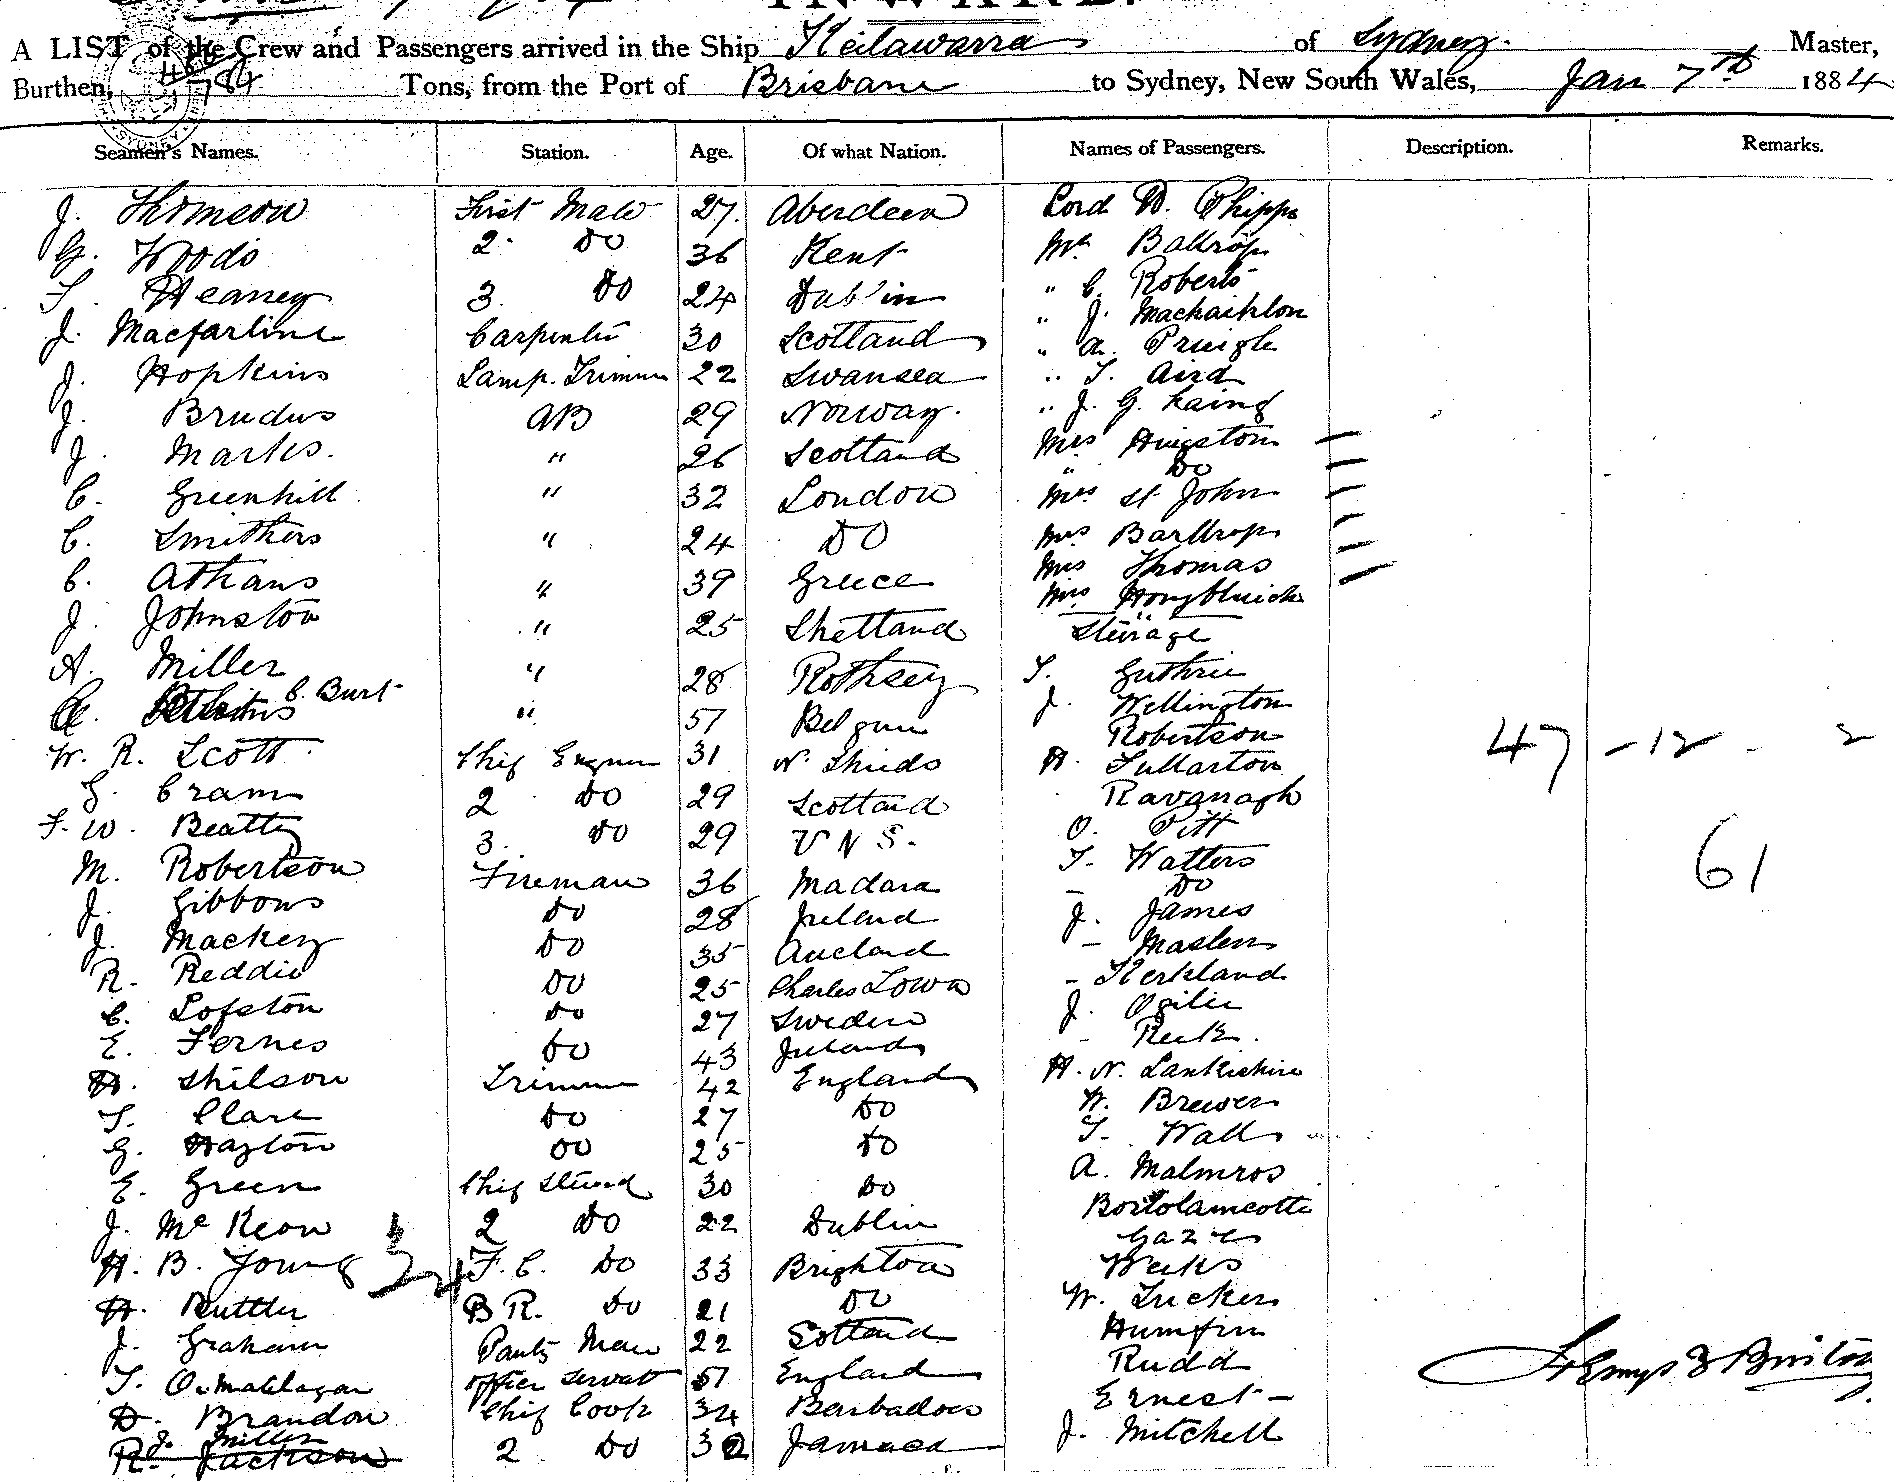 INWARD.
A LIST of the Crew and Passengers arrived in the Ship Keilawarra of Sydney. Master,
Burthen, 784 Tons, from the Port of Brisbane to Sydney, New South Wales, Jan 7th 1884
Seamen's Names. Station. Age. Of what Nation. Names of Passengers. Description. Remarks.
J. Thomson First Mate 27. Aberdeen Lord W. Phipps
G. Woods 2. Do 36 Kent Mr Balkrop
T. Heaney 3. Do 24 Dublin " C. Roberts
J. Macfarline Carpenter 30 Scotland " J.
J. Hopkins Lamp. Trimmer 22 Swansea " A. Pringle
J. Brudus AB 29 Norway. " T. Aird
J. Marks. " 26 Scotland " J. G. Laing
C. Greenhill " 32 London Mrs Hingston
C. Smithers " 24 Do " Do
C. Athans " 39 Greece Mrs St John
J. Johnston " 25 Shetland Mrs Barltrop
A. Miller " 28 Rothsey Mrs Thomas
C. Burt " 57 Belgum Mrs
W. R. Scott Chif Engineer 31 N. Shields Sterage
G. Cram 2 Do 29 Scotland T. Guthrie
F. W. Beatty 3. Do 29 J. Wellington
M. Robertson Fireman 36 Madara Robertson
J. Gibbons Do 28 Ireland A. Fullarton
J. Mackey Do 35 Aucland Kavanagh
R. Reddie Do 25 Charles Town O. Pitt
C. Lofston Do 27 Sweden T. Watters
E. Fernes Do 43 Ireland - Do
H. Shilson Trimmer 42 England J. James
T. Clare Do 27 Do - Maslem
G. Hayton Do 25 Do - Kerkland
E. Green Chif Steward 30 Do J. Ogilie
J. McKeon 2 Do 22 Dublin - Reek.
H. B. Young F. C. Do 33 Brighton H. N. Lankishire
H. Buttler B R. Do 21 Do W. Brewer
J. Graham Pantry Man 22 Scotland T. Wall
T. Officer Servant 51 England A. Malmros
D. Brandon Chif Cook 34 Barbadoes Bortolamcotti
J. Miller
R. Jackson 2 Do 32 Jamaca Gaze
Weeks
W. Tucker
Humfin
Rudd
Ernest
J. Mitchell
47 - 12 - 2
61